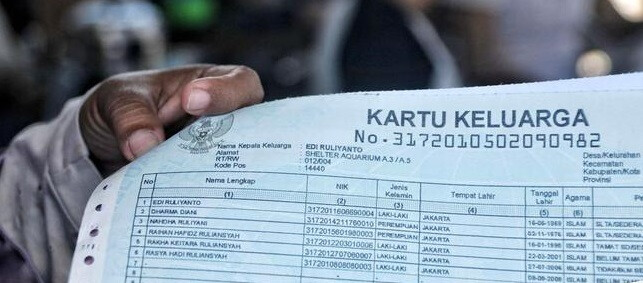 KARTU KELUARGA
No. 3172010502090982
Nama Kepala Keluarga : EDI RULIYANTO
Alamat : SHELTER AQUARIUM A.3 / A.5
RT/RW : 012/004
Kode Pos : 14440
Desa/Kelurahan
Kecamatan
Kabupaten/Ko
Provinsi
No Nama Lengkap NIK Jenis Kelamin Tempat Lahir Tanggal Lahir Agama
(1) (2) (3) (4) (5) (6)
1 EDI RULIYANTO 3172011606690004 LAKI-LAKI JAKARTA ISLAM SLTA/SEDE
2 DHARMA DIANI 3172014211760010 PEREMPUAN JAKARTA ISLAM SLTA/SEDE
3 NAHDHA RULIYANI 3172015601980003 PEREMPUAN JAKARTA ISLAM TAMAT SD/SE
4 RAIHAN HAFIDZ RULIANSYAH 3172012203010006 LAKI-LAKI JAKARTA ISLAM BELUM TAMAT
5 RAKHA KEITARA RULIANSYAH 3172012707060007 LAKI-LAKI JAKARTA ISLAM TIDAK/BLM
6 RASYA HADI RULIANSYAH 3172010808080003 LAKI-LAKI JAKARTA ISLAM BELUM
7 - - - - -
8